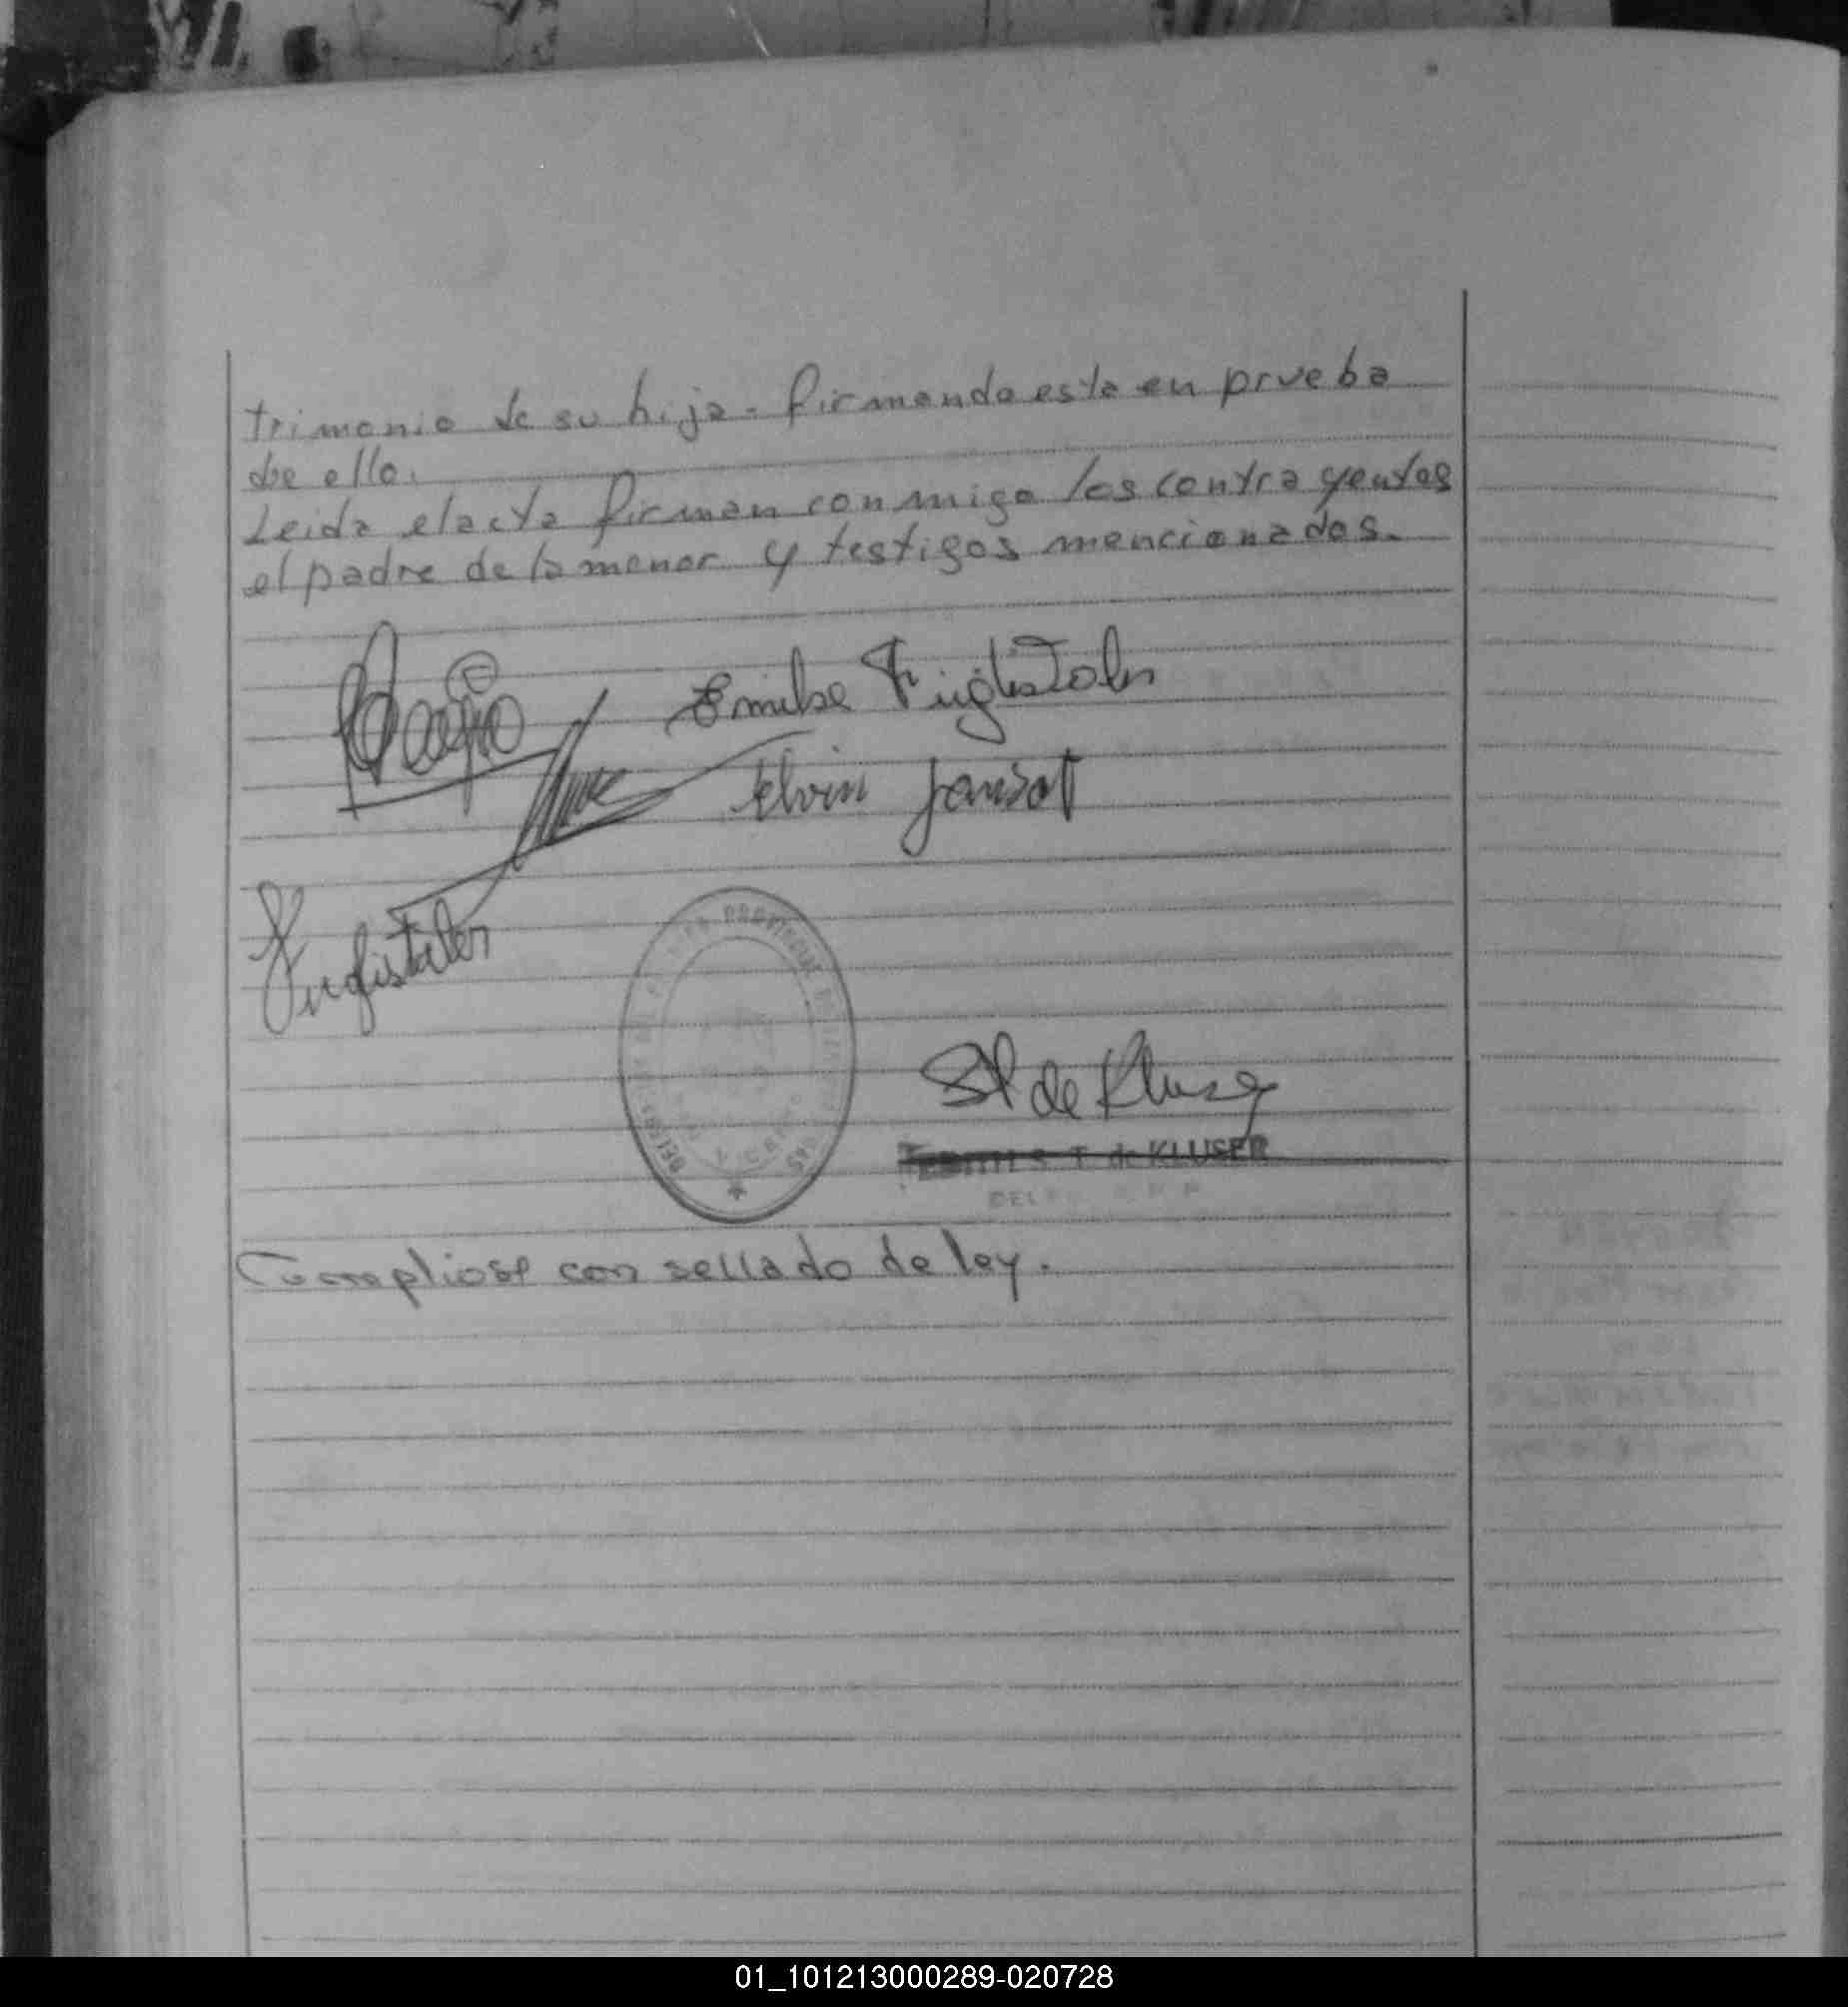 trimonio de su hija - firmando esta en prueba
de ello.
Leida el acta firman conmigo los contrayentes
el padre de la menor y testigos mencionados.
Emilse Fuglistaler
Elvin Jansat
Fuglistaler
PROVINCIAL
DELEG
ST de Kluser
S. T. de KLUSER
Cumpliose con sellado de ley.
01_101213000289-020728